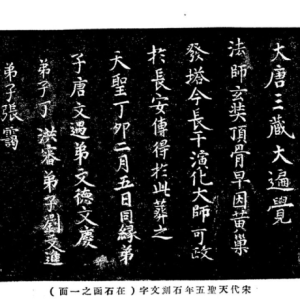 大唐三藏大遍覺
法師玄奘頂骨早因黃巢
發塔今長干演化大師可政
於長安傳得於此葬之
天聖丁卯二月五日同緣弟
子唐文遇弟文德文慶
弟子丁洪審弟子劉文進
弟子張靄
宋代天聖五年石刻文字（在石函之一面）